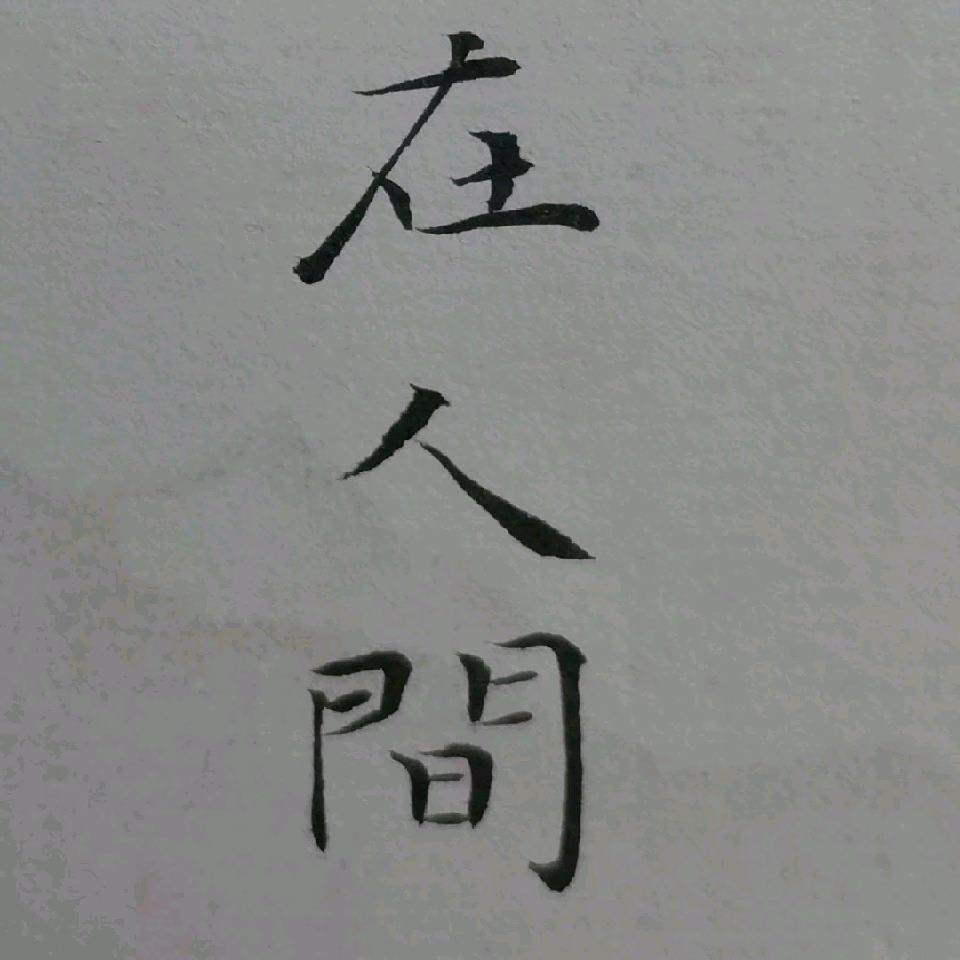 在人間